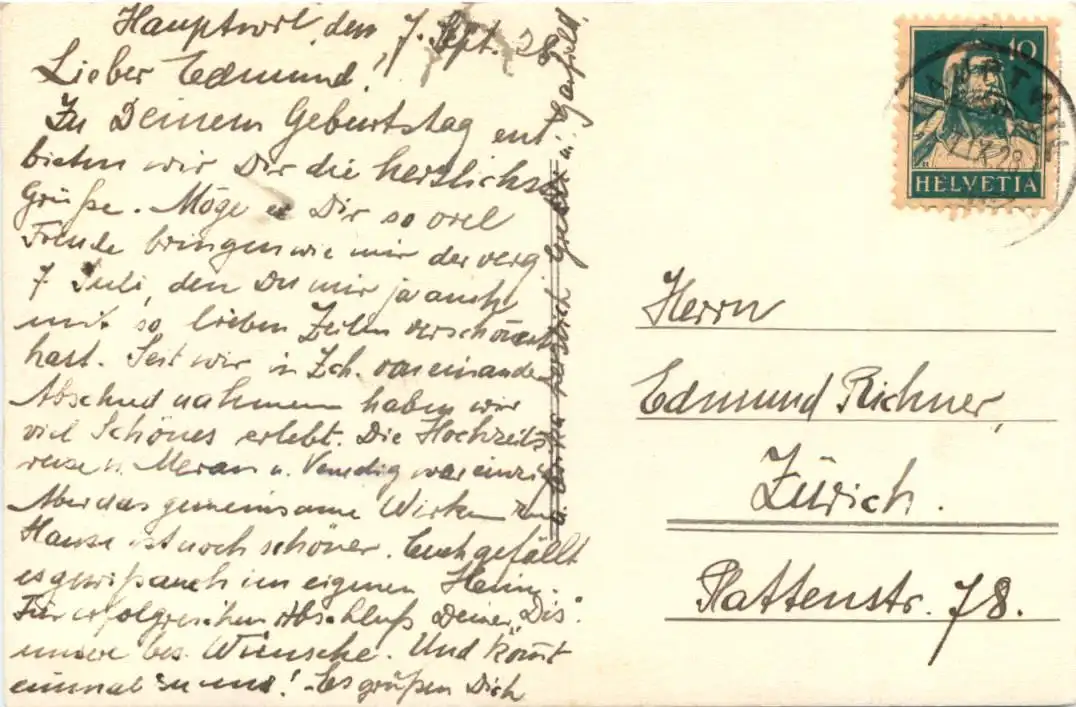 Hauptwil, den 7. Sept. 28
Lieber Edmund!
Zu Deinem Geburtstag ent
bieten wir Dir die herzlichste
Grüße. Möge er Dir so viel
Freude bringen wie mir der verg.
7 Juli, den Du mir ja auch
mit so lieben Zeilen verschönert
hast. Seit wir in Zch. voneinander
Abschied nahmen haben wir
viel Schönes erlebt. Die Hochzeits
reise n. Meran u. Venedig war einzig
Aber das gemeinsame Wirken zu
Hause ist noch schöner. Euch gefällt
es gewiß auch im eigenen Heim.
Für erfolgreichen Abschluß Deiner Dis.
unsere bes. Wünsche. Und kommt
einmal zu uns! Es grüßen Dich
u. herzlich u.
10
HELVETIA
HAUPTWIL
7.IX.28
Herrn
Edmund Richner,
Zürich.
Plattenstr. 78.